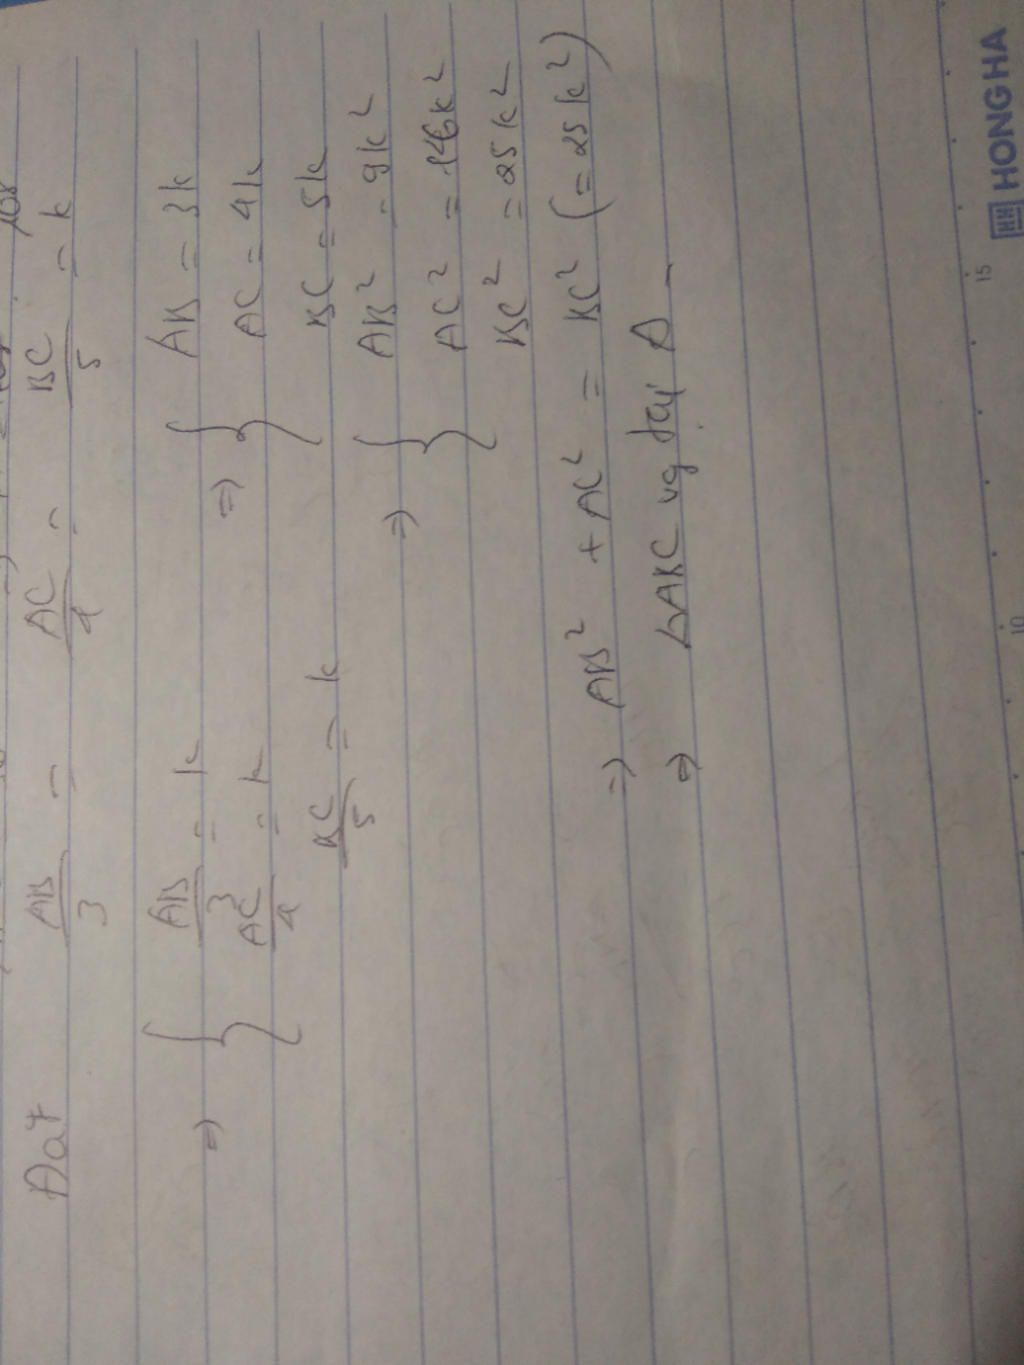 Đặt AB/3 = AC/4 = BC/5 = k
=> { AB/3 = k => { AB = 3k
AC/4 = k AC = 4k
BC/5 = k BC = 5k
=> { AB² = 9k²
AC² = 16k²
BC² = 25k²
=> AB² + AC² = BC² (= 25k²)
=> △ABC vg tại A
HONG HA
15
10